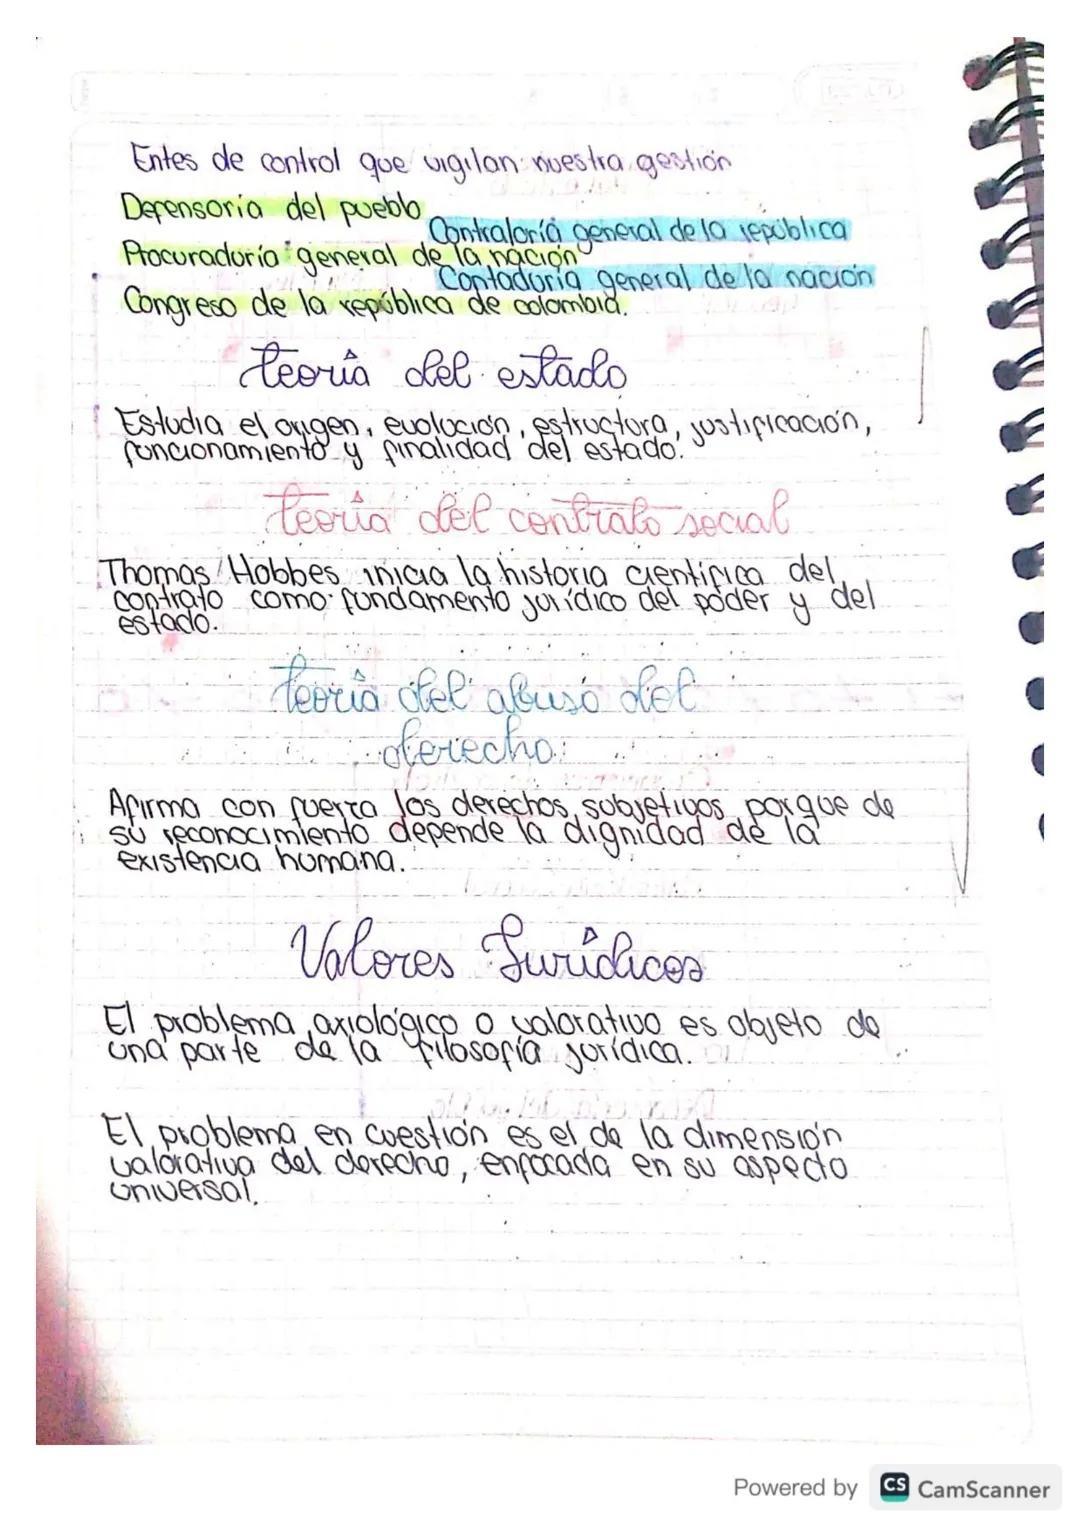 Entes de control que vigilan nuestra gestión
Defensoria del pueblo
Contraloría general de la república
Procuraduría general de la nación
Contaduría general de la nación
Congreso de la república de colombia.
teoría del estado
Estudia el origen, evolución, estructura, justificación,
funcionamiento y finalidad del estado.
teoría del contrato social
Thomas Hobbes inicia la historia científica del
contrato como fundamento jurídico del poder y del
estado.
teoría del abuso del
derecho:
Afirma con fuerza los derechos subjetivos porque de
su reconocimiento depende la dignidad de la
existencia humana.
Valores Jurídicos
El problema axiológico o valorativo es objeto de
una parte de la filosofía jurídica.
El problema en cuestión es el de la dimensión
valorativa del derecho, enfocada en su aspecto
universal.
Powered by CS CamScanner